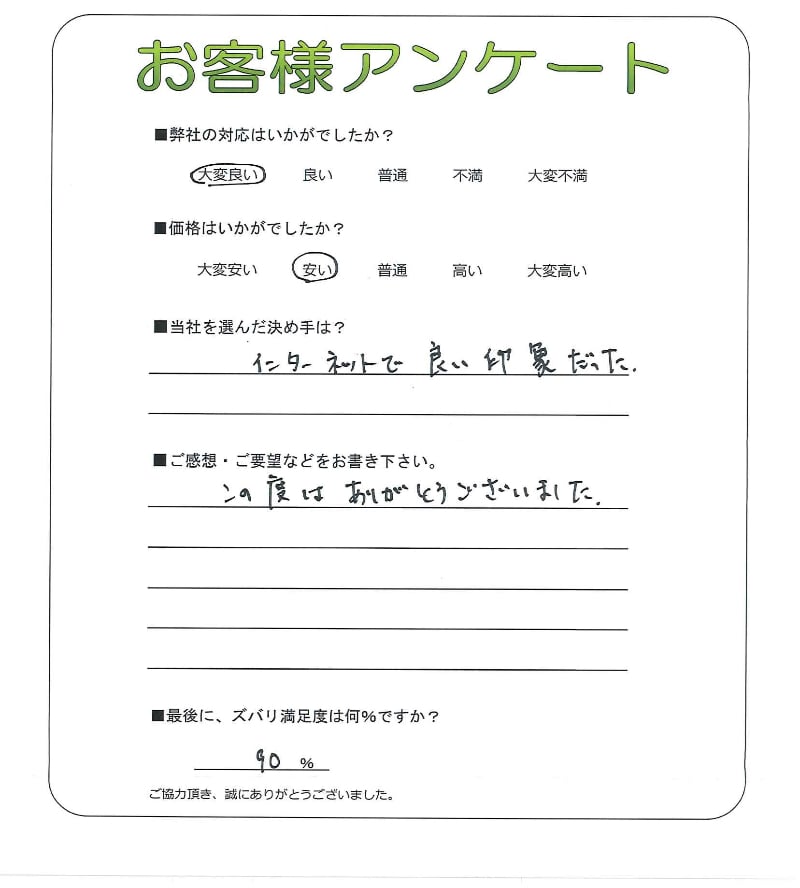 お客様アンケート
■弊社の対応はいかがでしたか？
大変良い 良い 普通 不満 大変不満
■価格はいかがでしたか？
大変安い 安い 普通 高い 大変高い
■当社を選んだ決め手は？
インターネットで良い印象だった.
■ご感想・ご要望などをお書き下さい。
この度はありがとうございました.
■最後に、ズバリ満足度は何％ですか？
90 %
ご協力頂き、誠にありがとうございました。